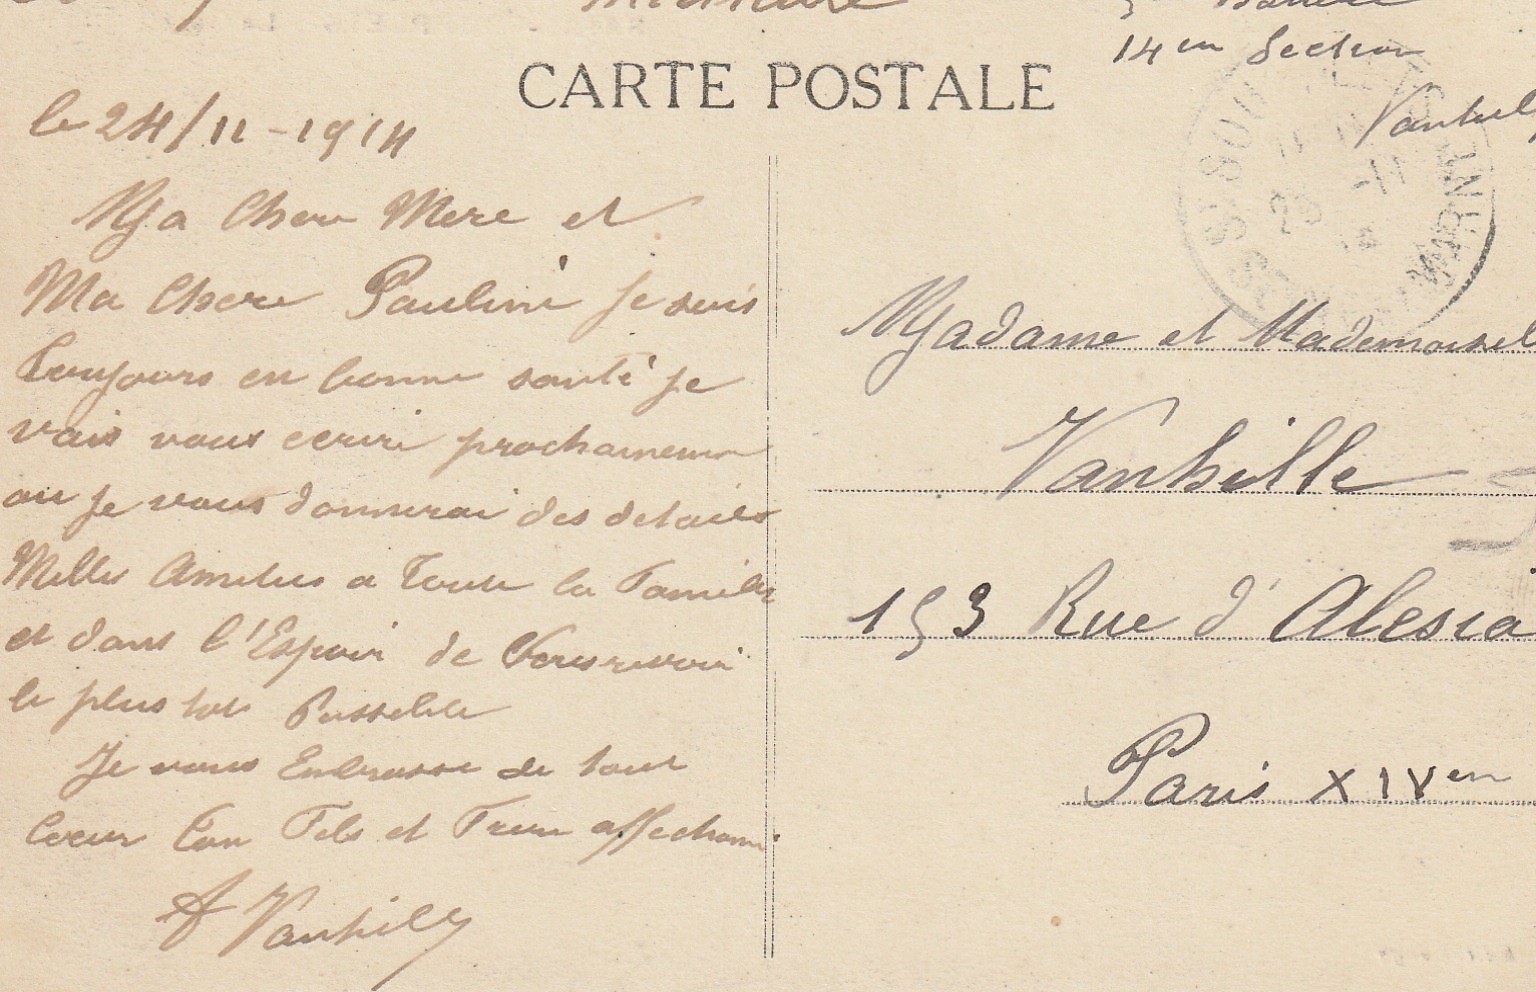 14em Section
CARTE POSTALE
le 24/11-1914
Ma Chere Mere et
Ma Chere Pauline je suis
toujours en bonne santé je
vais vous ecrire prochainement
ou je vous donnerai des details
Milles Amities a toute la Famille
et dans l'Espoir de
le plus tot Possible
Je vous Embrasse de tout
Coeur Ton Fils et Frere affectionné
A Vanhille
Madame et Mademoisel
Vanhille
153 Rue d'Alesia
Paris XIVem